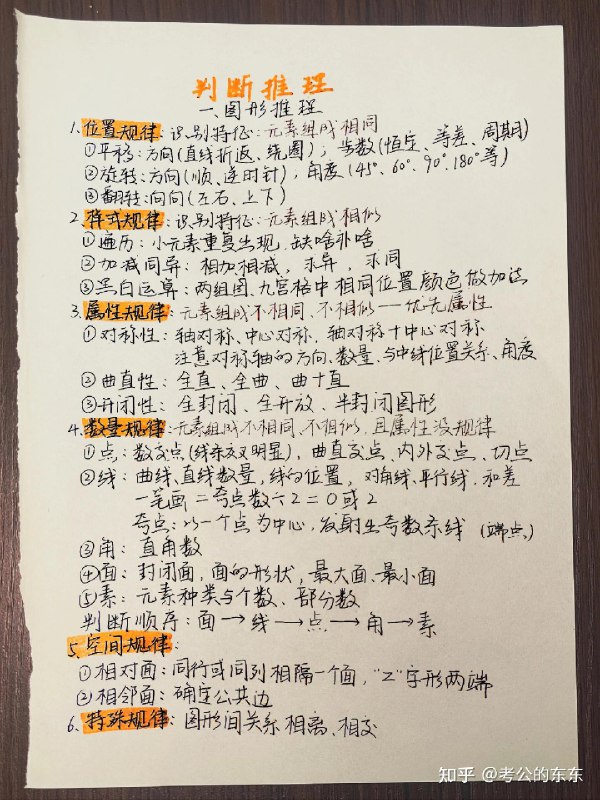 判断推理
一、图形推理
1.位置规律:识别特征:元素组成相同
①平移:方向(直线折返、绕圈);步数(恒定、等差、周期)
②旋转:方向(顺、逆时针),角度(45°、60°、90°、180°等)
③翻转:向向(左右、上下)
2.样式规律:识别特征:元素组成相似
①遍历:小元素重复出现,缺啥补啥
②加减同异:相加相减,求异,求同
③黑白运算:两组图、九宫格中相同位置颜色做加法
3.属性规律:元素组成不相同、不相似——优先属性
①对称性:轴对称、中心对称,轴对称+中心对称
注意对称轴的方向、数量、与中线位置关系、角度
②曲直性:全直、全曲、曲+直
③开闭性:全封闭、全开放、半封闭图形
4.数量规律:元素组成不相同、不相似,且属性没规律
①点:数交点(线条交叉明显),曲直交点、内外交点、切点
②线:曲线、直线数量,线的位置,对角线、平行线.和差
一笔画=奇点数÷2=0或2
奇点:以一个点为中心,发射出奇数条线(端点)
③角:直角数
④面:封闭面,面的形状,最大面、最小面
⑤素:元素种类与个数、部分数
判断顺序:面→线→点→角→素
5.空间规律:
①相对面:同行或同列相隔一个面,"Z"字形两端
②相邻面:确定公共边
6.特殊规律:图形间关系相离、相交
知乎 @考公的东东